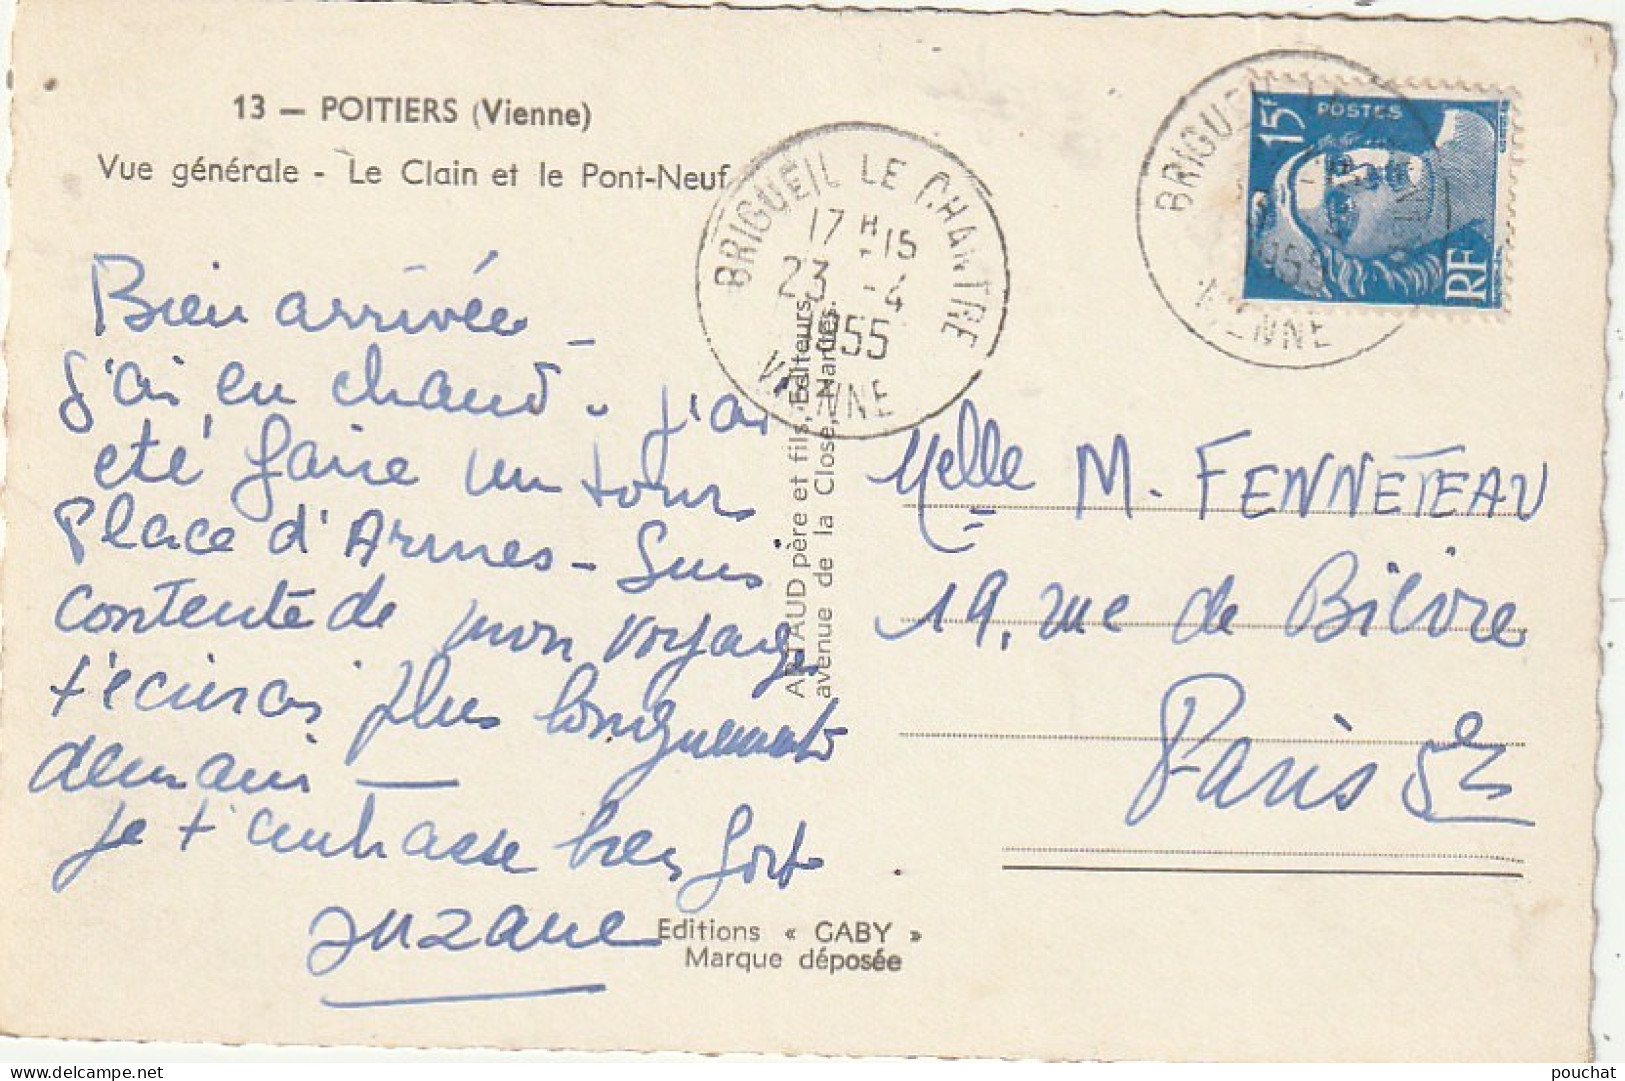 13 — POITIERS (Vienne)
Vue générale - Le Clain et le Pont-Neuf
Bien arrivée -
j'ai eu chaud. j'ai
eté faire un tour
Place d'Armes - Suis
contente de mon voyage
t'écrirai plus longuement
demain —
je t'embrasse bien fort
Suzane
BRIGUEIL LE CHANTRE
17 H 15
23 - 4
1955
VIENNE
ARTAUD père et fils, Editeurs
avenue de la Close, Nantes.
Editions « GABY »
Marque déposée
BRIGUEIL LE CHANTRE
1955
VIENNE
15F
POSTES
RF
Melle M. FENNETEAU
19, rue de Bièvre
Paris 5e
pouchat